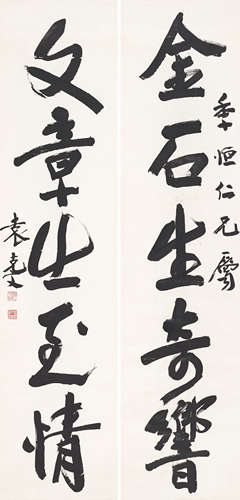 金石生奇響
季恒仁兄属
文章出至情
袁克文